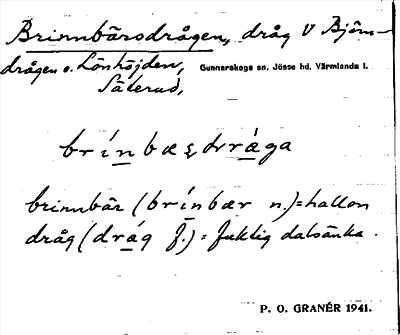 Brinnbärsdrågen, dråg V Björn-
drågen o. Lönhöjden, Gunnarskogs sn, Jösse hd, Värmlands l.
Säterud,
brinnbär (brínbær n.) = hallon
dråg (dråg f.) = fuktig dalsänka.
P. O. GRANÉR 1941.